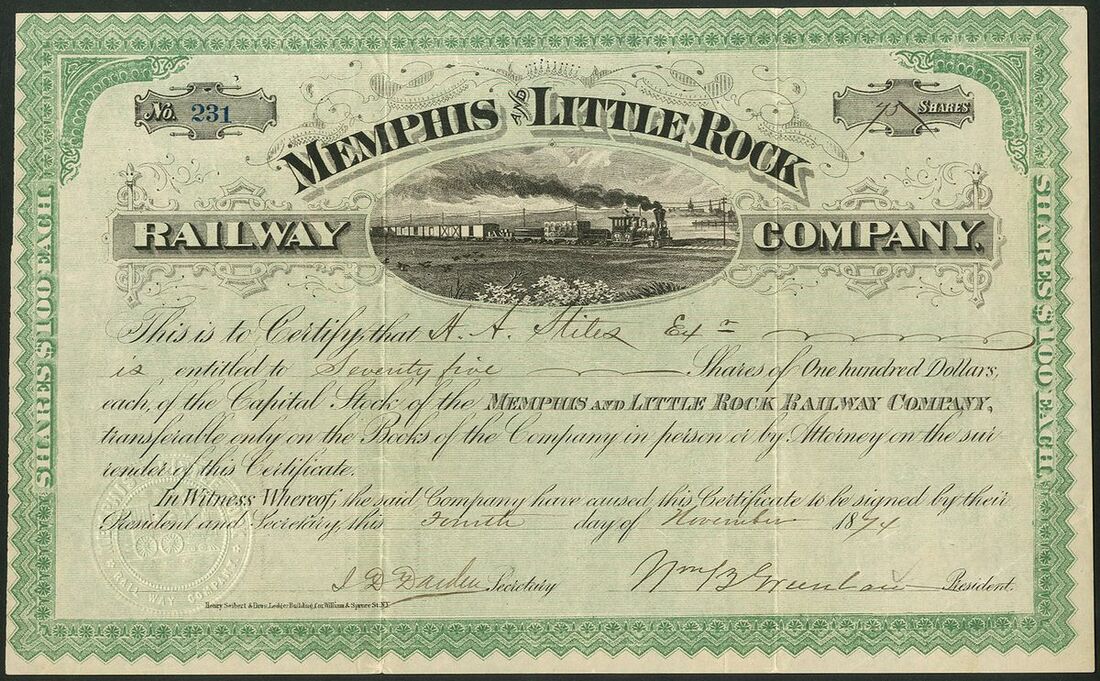 No. 231
75 SHARES
MEMPHIS AND LITTLE ROCK
RAILWAY COMPANY.
SHARES $100 EACH
SHARES $100 EACH
This is to Certify, that H. A. Stiles Exr
is entitled to Seventy five Shares of One hundred Dollars,
each, of the Capital Stock of the MEMPHIS AND LITTLE ROCK RAILWAY COMPANY,
transferable only on the Books of the Company in person or by Attorney on the sur
render of this Certificate.
In Witness Whereof, the said Company have caused this Certificate to be signed by their
President and Secretary, this Fourth day of November 1874
Secretary Wm B Greenlaw President.
Henry Seibert & Bros. Ledger Building, Cor. William & Spruce St. N.Y.
RAIL WAY COMPANY